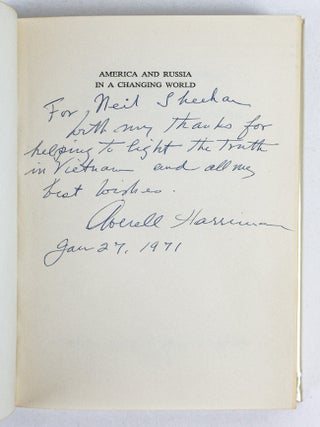 AMERICA AND RUSSIA
IN A CHANGING WORLD
For Neil Sheehan
with my thanks for
helping to light the truth
in Vietnam and all my
best wishes.
Averell Harriman
Jan 27, 1971